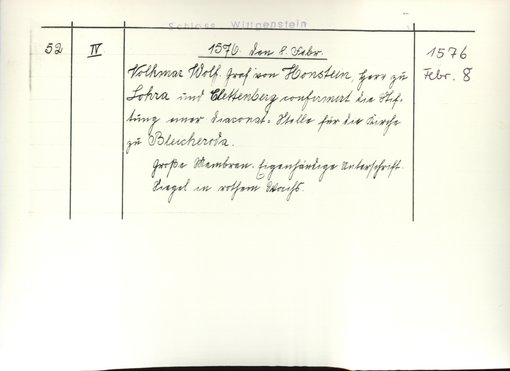 Schloss Wittgenstein
52 IV 1576. den 8. Febr. 1576 Febr. 8
Volkmar Wolf, Graf von Honstein, Herr zu
Lohra und Clettenberg confirmirt die Stif-
tung einer Diaconat-Stelle für die Kirche
zu Bleicheroda.
Große Membran. Eigenhändige Unterschrift.
Siegel in rothem Wachs.